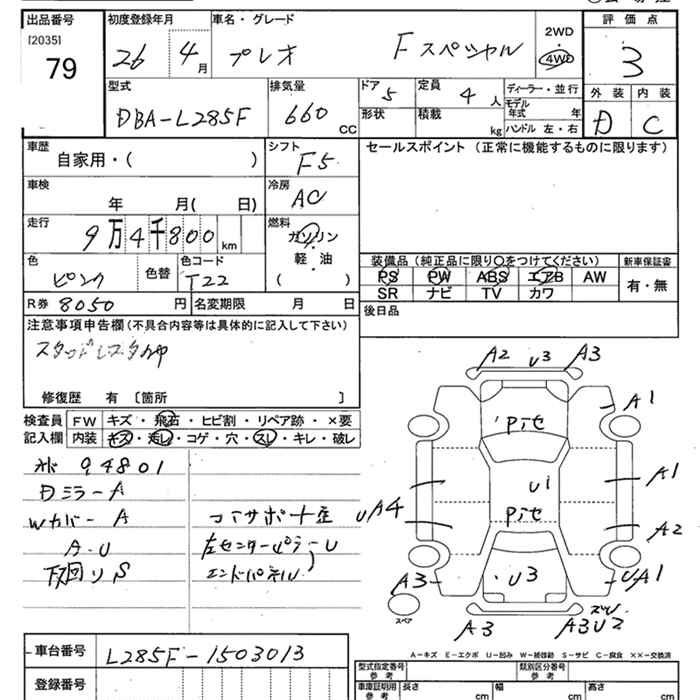 出品番号
[2035]
79
初度登録年月
26 4月
車名・グレード
プレオ Fスペシャル
2WD
4WD
評価点
3
型式
DBA-L285F
排気量
660 CC
ドア
5
形状
定員
4人
積載
kg
ディーラー・並行
モデル年式 年
ハンドル 左・右
外装 内装
D C
車歴
自家用・( )
シフト
F5
セールスポイント (正常に機能するものに限ります)
車検
年 月( 日)
冷房
AC
走行
9万4千800km
燃料
ガソリン
・
軽・油
( )
色
ピンク
色替
色コード
T22
装備品(純正品に限り〇をつけてください)
新車保証書
PS PW ABS エアB AW
SR ナビ TV カワ
有・無
R券 8050円
名変期限 月 日
後日品
注意事項申告欄(不具合内容等は具体的に記入して下さい)
スタッドレスタイヤ
修復歴 有 〔箇所 〕
検査員 FW キズ・飛石・ヒビ割・リペア跡・×要
記入欄 内装 キズ・汚レ・コゲ・穴・スレ・キレ・破レ
94801
DミラーA
WカバーA
A・U
下廻りS
コアサポート歪
左センターピラーU
エンドパネルU
A2 U3 A3
A1
pite
A1
U1
UA4
pite
A2
A3
U3
UA1
スペア
A3
A3U2
A−キズ E−エクボ U−凹み W−補修跡 S−サビ C−腐食 ××−交換済
車台番号 L285F-1503013
登録番号
型式指定番号
参考
類別区分番号
参考
車庫証明用
参考
長さ cm
幅 cm
高さ cm